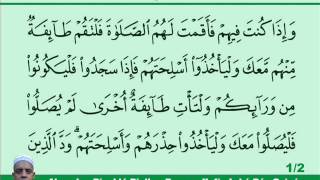 وَإِذَا كُنتَ فِيهِمْ فَأَقَمْتَ لَهُمُ الصَّلَوٰةَ فَلْتَقُمْ طَآئِفَةٌ
مِّنْهُم مَّعَكَ وَلْيَأْخُذُوٓا۟ أَسْلِحَتَهُمْ فَإِذَا سَجَدُوا۟ فَلْيَكُونُوا۟
مِن وَرَآئِكُمْ وَلْتَأْتِ طَآئِفَةٌ أُخْرَىٰ لَمْ يُصَلُّوا۟
فَلْيُصَلُّوا۟ مَعَكَ وَلْيَأْخُذُوا۟ حِذْرَهُمْ وَأَسْلِحَتَهُمْ ۗ وَدَّ الَّذِينَ
1/2